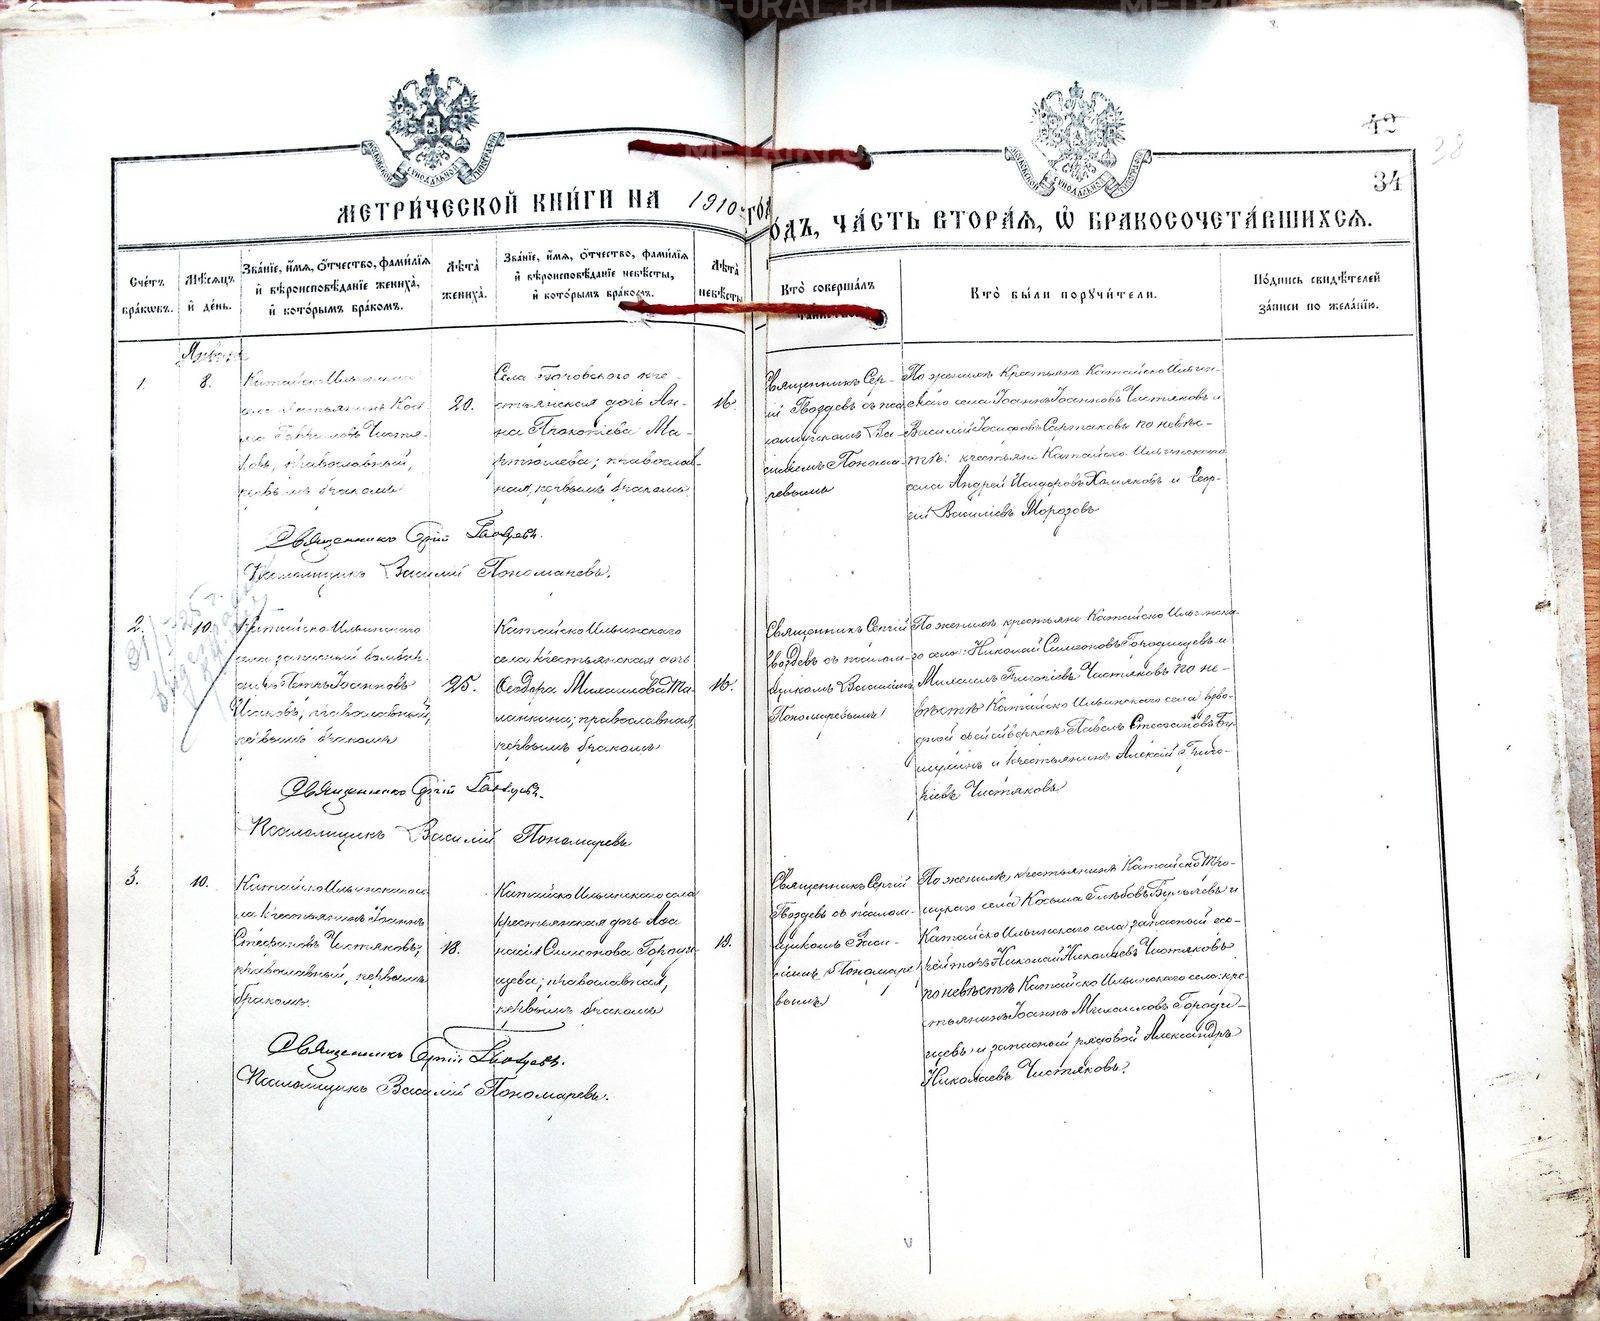 METRIKI.UISO-URAL.RU
42
38
34
МЕТРИ́ЧЕСКОЙ КНИ́ГИ НА 1910 ГО́ДЪ, ЧА́СТЬ ВТОРА́Я, Ѽ БРАКОСОЧЕТА́ВШИХСЯ.
Сче́тъ бра́кѡвъ.
Мѣ́сяцъ и́ де́нь.
Зва́нїе, и́мя, ѻ҆́тчество, фами́лїя и҆ вѣроисповѣ́данїе жениха̀, и҆ кото́рымъ бра́комъ.
Лѣ́та жениха̀.
Зва́нїе, и́мя, ѻ҆́тчество, фами́лїя и҆ вѣроисповѣ́данїе невѣ́сты, и҆ кото́рымъ бра́комъ.
Лѣ́та невѣ́сты
Кто̀ соверша́лъ
Кто̀ бы́ли поручи́тели.
По́дпись свидѣ́телей за́писи по жела́нїю.
Январь
1.
8.
Катайско Ильинскаго
села крестьянинъ Кос-
ма Чистя-
ковъ, православный,
первымъ бракомъ
20.
Села кре-
стьянская дочь Ан-
на Прокопіева Ма-
; православ-
ная, первымъ бракомъ
16.
Священникъ Сер-
гій Гвоздевъ съ пса-
ломщикомъ Ва-
силіемъ Понома-
ревымъ
По женихѣ крестьяне Катайско Ильин-
скаго села Іоаннъ Іоанновъ Чистяковъ и
Василій Іосифовъ Сартаковъ по невѣс-
тѣ: крестьяне Катайско Ильинскаго
села Андрей Исидоровъ Хомяковъ и Геор-
гій Василіевъ Морозовъ
Священникъ Сергій Гвоздевъ.
Псаломщикъ Василій Пономаревъ.
2.
10.
Катайско Ильинскаго
села запасный бомбан-
диръ Петръ Іоанновъ
Исаковъ, православный,
первымъ бракомъ
25.
Катайско Ильинскаго
села крестьянская дочь
Ѳеодора Михаилова Ма-
ланкина; православная,
первымъ бракомъ
16.
Священникъ Сергій
Гвоздевъ съ псалом-
щикомъ Василіемъ
Пономаревымъ
По женихѣ крестьяне Катайско Ильинска-
го села: Николай Симеоновъ Городищевъ и
Михаилъ Григоріевъ Чистяковъ по не-
вѣстѣ Катайско Ильинскаго села
фейерверкеръ Павелъ Стефановъ Бу-
и крестьянинъ Алексій Григо-
ріевъ Чистяковъ
Священникъ Сергій Гвоздевъ.
Псаломщикъ Василій Пономаревъ
3.
10.
Катайско Ильинскаго се-
ла крестьянинъ Іоаннъ
Стефановъ Чистяковъ,
православный, первымъ
бракомъ.
18.
Катайско Ильинскаго села
крестьянская дочь Аѳа
насія Симеонова Городи-
щева; православная,
первымъ бракомъ
19.
Священникъ Сергій
Гвоздевъ съ псалом-
щикомъ Васи-
ліемъ Пономаре
вымъ
По женихѣ, крестьянинъ Катайско Тро-
ицкаго села Косьма Глѣбовъ Булычевъ и
Катайско Ильинскаго села запасный еф-
рейторъ Николай Николаевъ Чистяковъ
по невѣстѣ Катайско Ильинскаго села: кре-
стьянинъ Іоаннъ Михаиловъ Городи-
щевъ и запасный рядовой Александръ
Николаевъ Чистяковъ.
Священникъ Сергій Гвоздевъ.
Псаломщикъ Василій Пономаревъ.